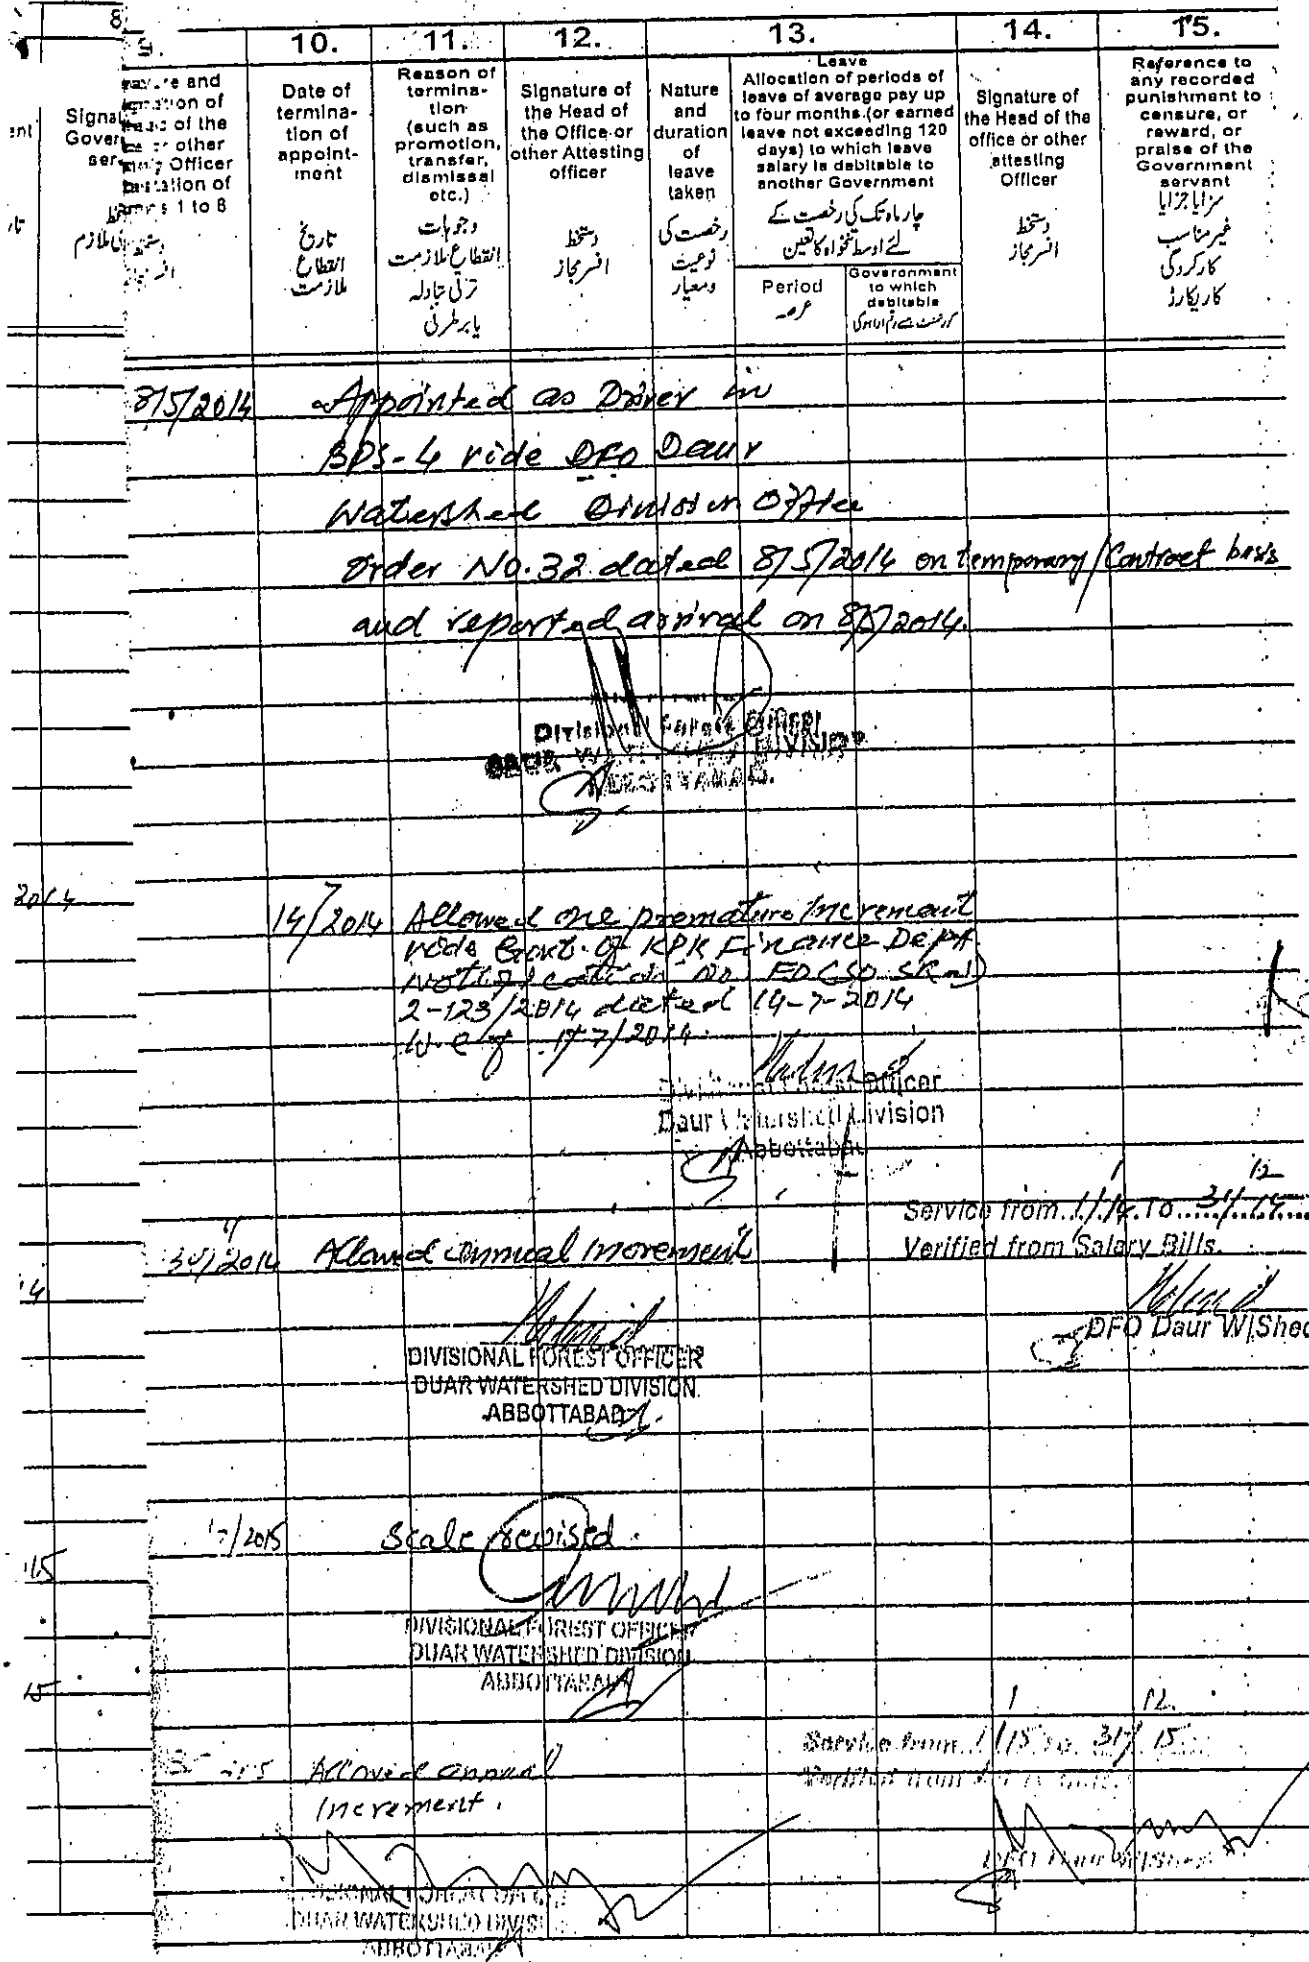 10. 11. 12. 13. 14. 15.
and
of
of the
other
Officer
of
1 to 8
Date of
termina-
tion of
appoint-
ment
تاریخ
انقطاع
ملازمت
Reason of
termina-
tion
(such as
promotion,
transfer,
dismissal
etc.)
وجوہات
انقطاع ملازمت
ترقی تبادلہ
یا برطرفی
Signature of
the Head of
the Office or
other Attesting
officer
دستخط
افسر مجاز
Nature
and
duration
of
leave
taken
رخصت کی
نوعیت
ومعیار
Leave
Allocation of periods of
leave of average pay up
to four months (or earned
leave not exceeding 120
days) to which leave
salary is debitable to
another Government
چار ماہ تک کی رخصت کے
لئے اوسط تنخواہ کا تعین
Period
عرصہ
Government
to which
debitable
Signature of
the Head of the
office or other
attesting
Officer
دستخط
افسر مجاز
Reference to
any recorded
punishment to
censure, or
reward, or
praise of the
Government
servant
سزا یا جزا یا
غیر مناسب
کارکردگی
کا ریکارڈ
8/5/2014 Appointed as Driver in
BPS-4 vide DFO Daur
Watershed Division Office
Order No. 32 dated 8/5/2014 on temporary/Contract basis
and reported arrival on 8/5/2014.
Divisional Forest Officer
2014
14/7/2014 Allowed one premature increment
vide Govt. of KPK Finance Deptt.
Notification No FD(SO SR-1)
2-123/2014 dated 14-7-2014
W.e.f 1-7/2014.
Divisional Forest Officer
Daur Watershed Division
Abbottabad
Service from 1/1/14 To 31/12/14
Verified from Salary Bills.
DFO Daur W/Shed
30/11/2014 Allowed annual increment
DIVISIONAL FOREST OFFICER
DUAR WATERSHED DIVISION
ABBOTTABAD
/2015 Scale revised.
DIVISIONAL FOREST OFFICER
DUAR WATERSHED DIVISION
ABBOTTABAD
15
Service from 1/1/15 to 31/12/15
Allowed annual
increment.
DFO Daur W/Shed
DIVISIONAL FOREST OFFICER
DUAR WATERSHED DIVISI
ABBOTTABAD